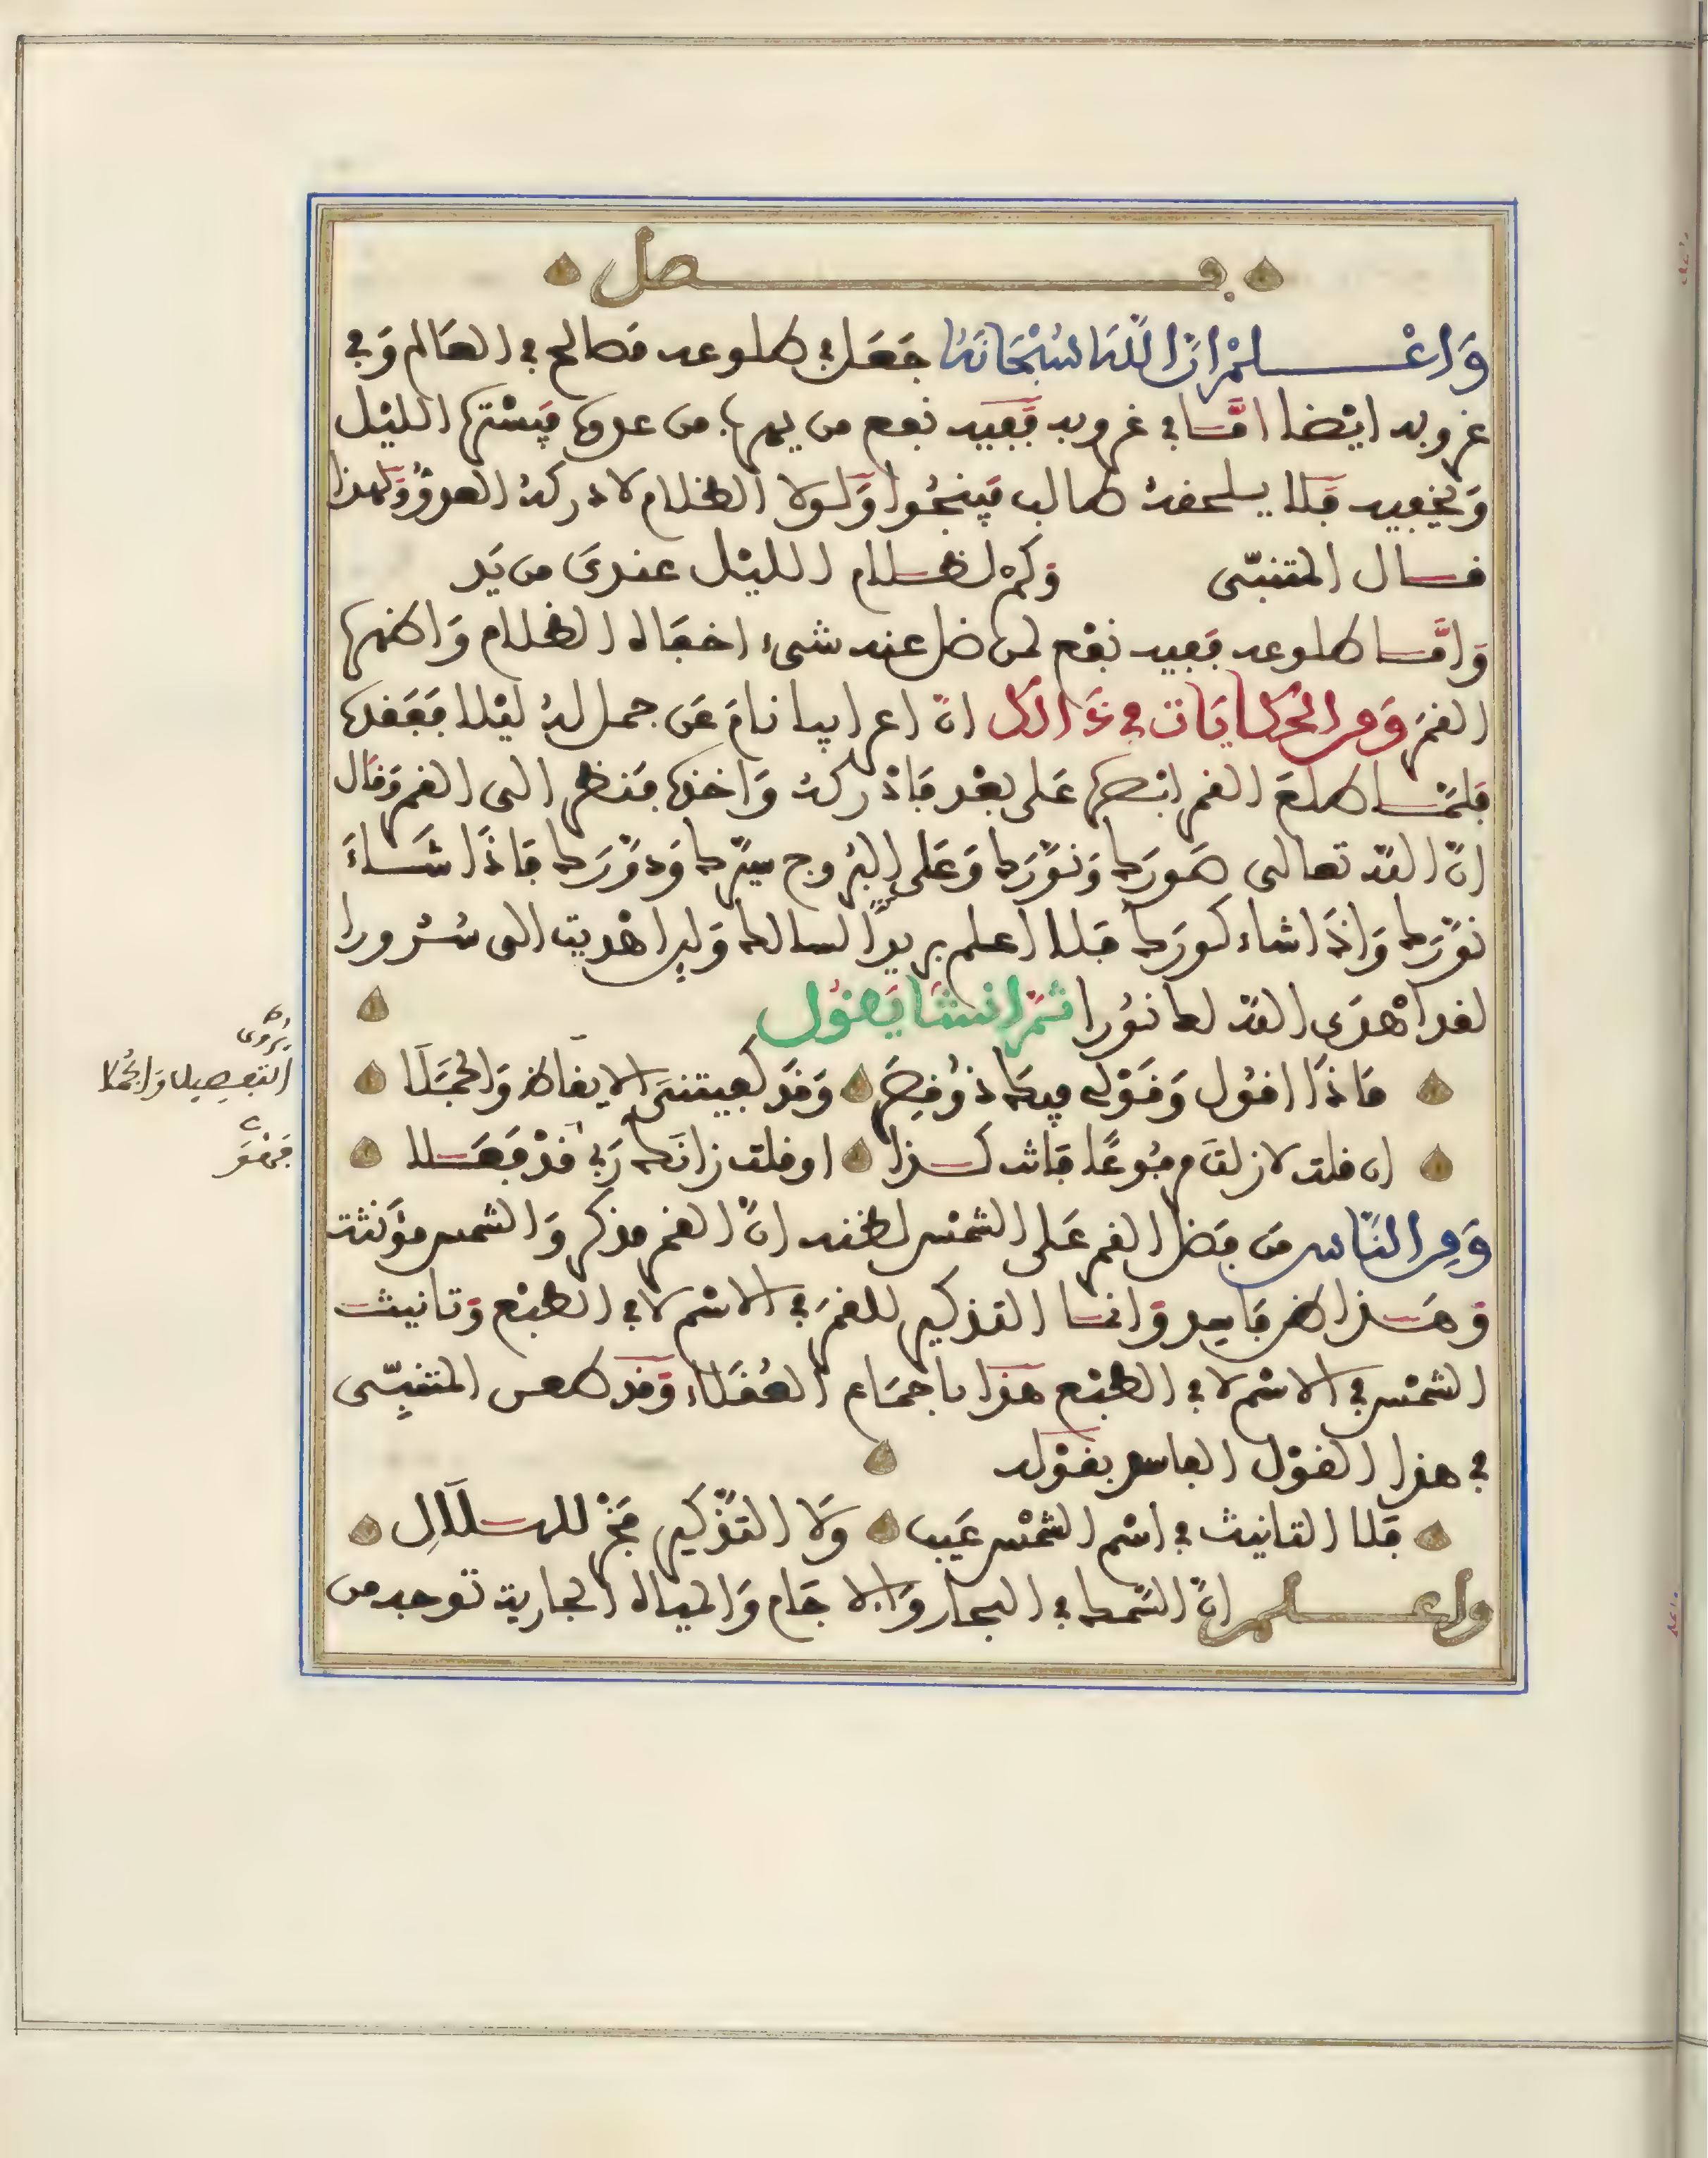 فصل
وَاعْلمْ انَّ اللّهَ سُبْحَانَهُ جَعَل في طلوعه مَصالح في العَالم وَفي
غروبه ايْضا امَّا في غروبه فَفيه نفع من يهرب من عدوه فيَسْتره الليْل
وَيخفيه فَلا يلحقه طالب فينجُوا وَلولا الظلام لادركهُ العدوُّ وَلهذا
قال المتنبّى وَكمْ لظلام الليْل عندىَ من يَد
وَامَّا طلوعه فَفيه نفْع لمن ضل عنه شىء اخفَاه الظلام وَاظهره
القمَر وَمن الحكايَات في ذَالك انّ اعرابيا نامَ عَن جمل لهُ ليْلا فَفَقده
فلمَّا طلعَ القمر ابْصره عَلى بعْد فَادْركهُ وَاخذه فنَظر الى القمر وَقال
انّ اللّه تعالى صَورَك وَنوّرَك وَعَلى البرُوج سيّرك وَدوّرَك فاذَا شَاءَ
نوّرَك وَاذَا شاء كورَك فلا اعلم مزيدًا اساله لك وَلين اهْديت الى سُرورا
لقد اهْدَى اللّه لك نوُرا ثمّ انشَا يَقول
مَا ذَا اقول وَقَوْلى فيكَ ذوُ قِصَر وَقدَ كفيتنىَ الايقاظ وَالجُمَلَا
ان قلت لا زلتَ مرفوُعًا فَانت كذا او قلت زانَك رَبي قدْ فَعَلا
يُرْوى
التفصيل وَالجُملا
فهْوَ
وَمن النَّاس مَن فَضل القمر عَلى الشمْس لظنه انَّ القمر مذكر وَالشمس مؤَنثة
وَهَذا ظن فَاسد وَانما التذكير للقمَر في الاسْم لا في الطبْع وَتانيث
الشمْس في الاسْم لا في الطبْع هَذا باجمَاع العُقَلاء وَقد طعن المتنبِّى
في هذا القوْل الفاسد بقوْله
فَلا التانيث في اسْم الشمْس عَيب وَلا التَّذْكير فَخْر للهلَالِ
واعلم انَّ السَّمك في البحار وَالاجَام وَالميَاه الجارية توجد من